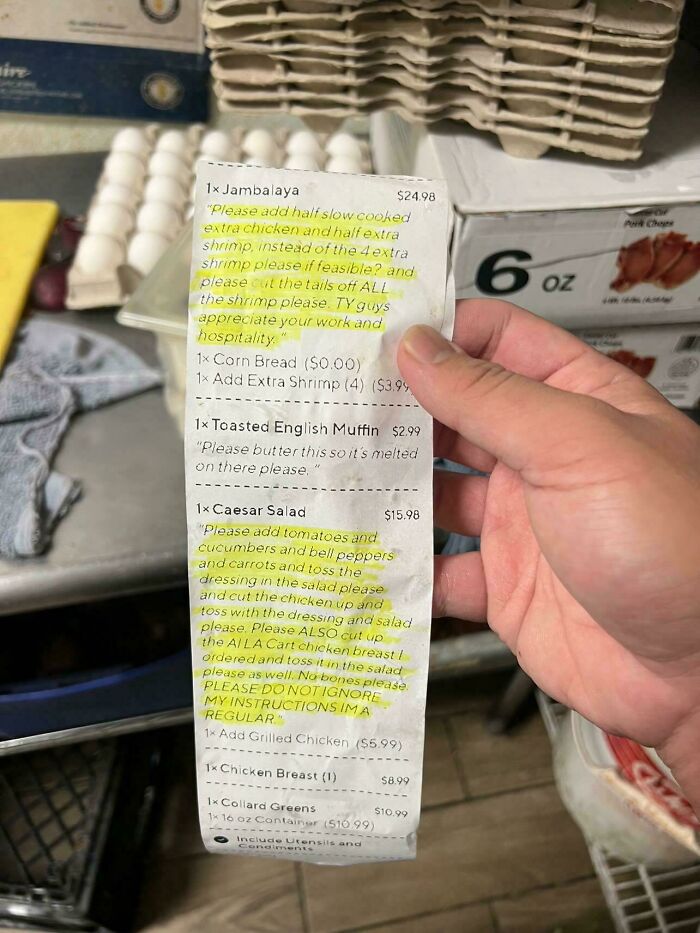 1× Jambalaya $24.98
"Please add half slow cooked
extra chicken and half extra
shrimp, instead of the 4 extra
shrimp please if feasible? and
please cut the tails off ALL
the shrimp please. TY guys
appreciate your work and
hospitality."
1× Corn Bread ($0.00)
1× Add Extra Shrimp (4) ($3.99
1× Toasted English Muffin $2.99
"Please butter this so it's melted
on there please. "
1× Caesar Salad $15.98
"Please add tomatoes and
cucumbers and bell peppers
and carrots and toss the
dressing in the salad please
and cut the chicken up and
toss with the dressing and salad
please. Please ALSO cut up
the Al LA Cart chicken breast I
ordered and toss it in the salad
please as well. No bones please.
PLEASE DO NOT IGNORE
MY INSTRUCTIONS IM A
REGULAR."
1× Add Grilled Chicken ($5.99)
1× Chicken Breast (1) $8.99
1× Collard Greens $10.99
1× 16 oz Container ($10.99)
Include Utensils and
Condiments
Pork Chops
6 OZ